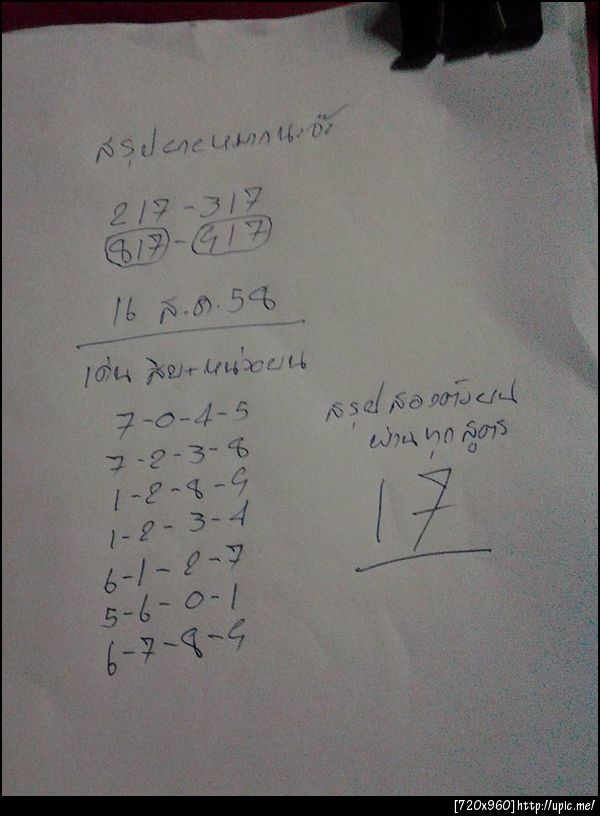 สรุปขายหมากนะจ๊ะ
217-317
817-917
16 ส.ค.58
เด่น สิบ+หน่วยบน
7-0-4-5
7-2-3-8
1-2-8-9
1-2-3-4
6-1-2-7
5-6-0-1
6-7-8-9
สรุปสองตัวบน
ผ่านทุกสูตร
17
[720x960]http://upic.me/